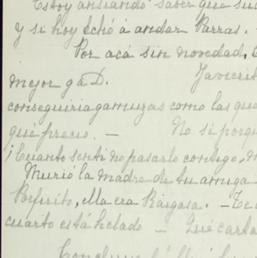 Estoy ansiando saber que su
y si hoy echó á andar Parras. -
Por acá sin novedad,
mejor g a D. Javierit
conseguiria gamuzas como las que
que precio. - No si porq
¡Cuánto sentí no pasarlo contigo,
Murió la madre de tu amiga
Porfirito, ella era Raigosa. - Te
cuarto está helado - Qué carta